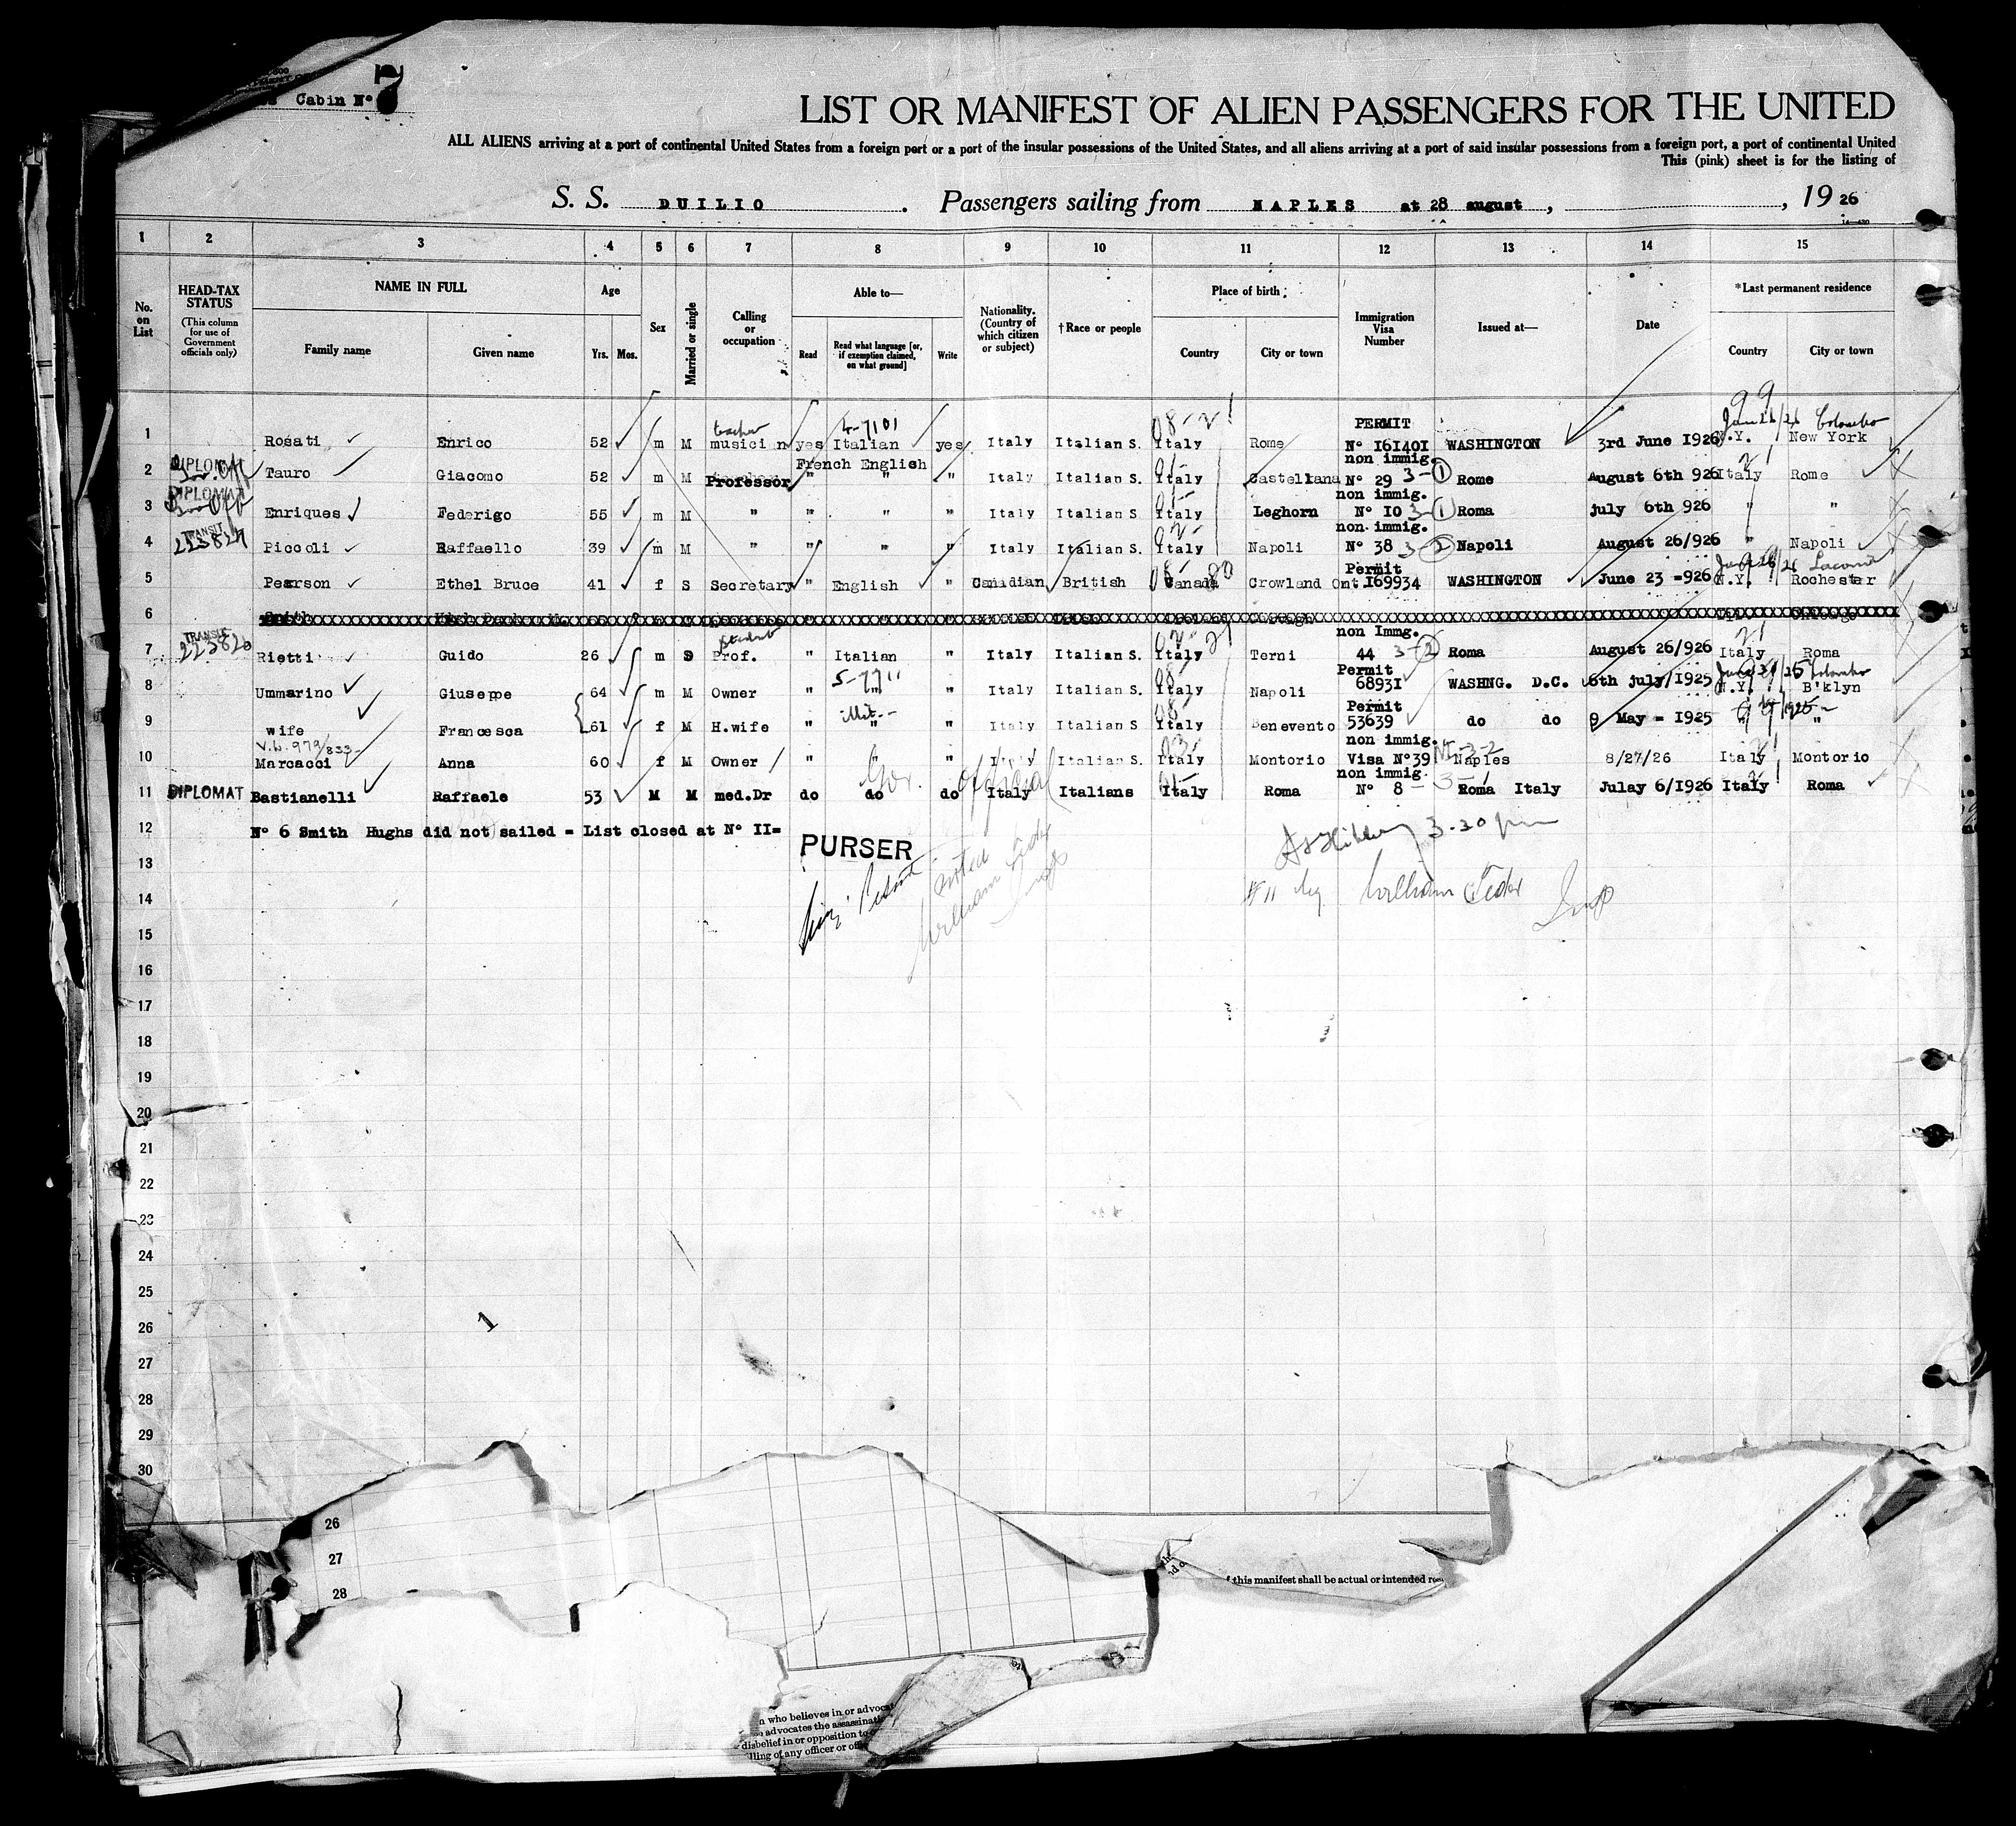 Cabin Nº 7
LIST OR MANIFEST OF ALIEN PASSENGERS FOR THE UNITED
ALL ALIENS arriving at a port of continental United States from a foreign port or a port of the insular possessions of the United States, and all aliens arriving at a port of said insular possessions from a foreign port, a port of continental United
This (pink) sheet is for the listing of
S. S. DUILIO. Passengers sailing from NAPLES at 28 august, , 19 26
1 2 3 4 5 6 7 8 9 10 11 12 13 14 15
No. on List HEAD-TAX STATUS (This column for use of Government officials only) NAME IN FULL Family name Given name Age Yrs. Mos. Sex Married or single Calling or occupation Able to— Read Read what language [or, if exemption claimed, on what ground] Write Nationality. (Country of which citizen or subject) †Race or people Place of birth Country City or town Immigration Visa Number Issued at— Date *Last permanent residence Country City or town
teacher PERMIT Colombo
1 Rosati Enrico 52 m M musici n yes Italian yes Italy Italian S. Italy Rome Nº 161401 WASHINGTON 3rd June 1926 N.Y. New York
DIPLOMAT French English non immig.
2 Tauro Giacomo 52 m M Professor " " " Italy Italian S Italy Castellana Nº 29 3-1 Rome August 6th 926 Italy Rome
DIPLOMAT non immig.
3 Enriques Federigo 55 m M " " " " Italy Italian S Italy Leghorn Nº 10 3-1 Roma july 6th 926 " "
TRANSIT non immig.
4 Piccoli Raffaello 39 m M " " " " Italy Italian S Italy Napoli Nº 38 3-2 Napoli August 26/926 " Napoli
Permit
5 Pearson Ethel Bruce 41 f S Secretary " English " Canadian British Canada Crowland Ont. 169934 WASHINGTON June 23 =926 N.Y. Rochester
6 Smith
TRANSIT Student non Immg.
7 Rietti Guido 26 m S Prof. " Italian " Italy Italian S. Italy Terni 44 3-2 Roma August 26/926 Italy Roma
Permit
8 Ummarino Giuseppe 64 m M Owner " " " Italy Italian S. Italy Napoli 68931 WASHNG. D.C. 6th july/1925 N.Y. B'klyn
illit. Permit
9 wife Francesca 61 f M H.wife " " " Italy Italian S Italy Benevento 53639 do do 9 May = 1925 " "
non immig.
10 Marcacci Anna 60 f M Owner " " " Italy Italian S. Italy Montorio Visa Nº39 Naples 8/27/26 Italy Montorio
non immig
11 DIPLOMAT Bastianelli Raffaele 53 M M med.Dr do do do Italy Italians Italy Roma Nº 8 Roma Italy Julay 6/1926 Italy Roma
12 Nº 6 Smith Hughs did not sailed = List closed at Nº II=
PURSER
3-30 pm
13
noted William
#11 by William
14
15
16
17
18
19
20
21
22
23
24
25
26
27
28
29
30
1
26
27
28
f this manifest shall be actual or intended
n who believes in or advocat
advocates the assassinati
disbelief in or opposition to
lling of any officer or off